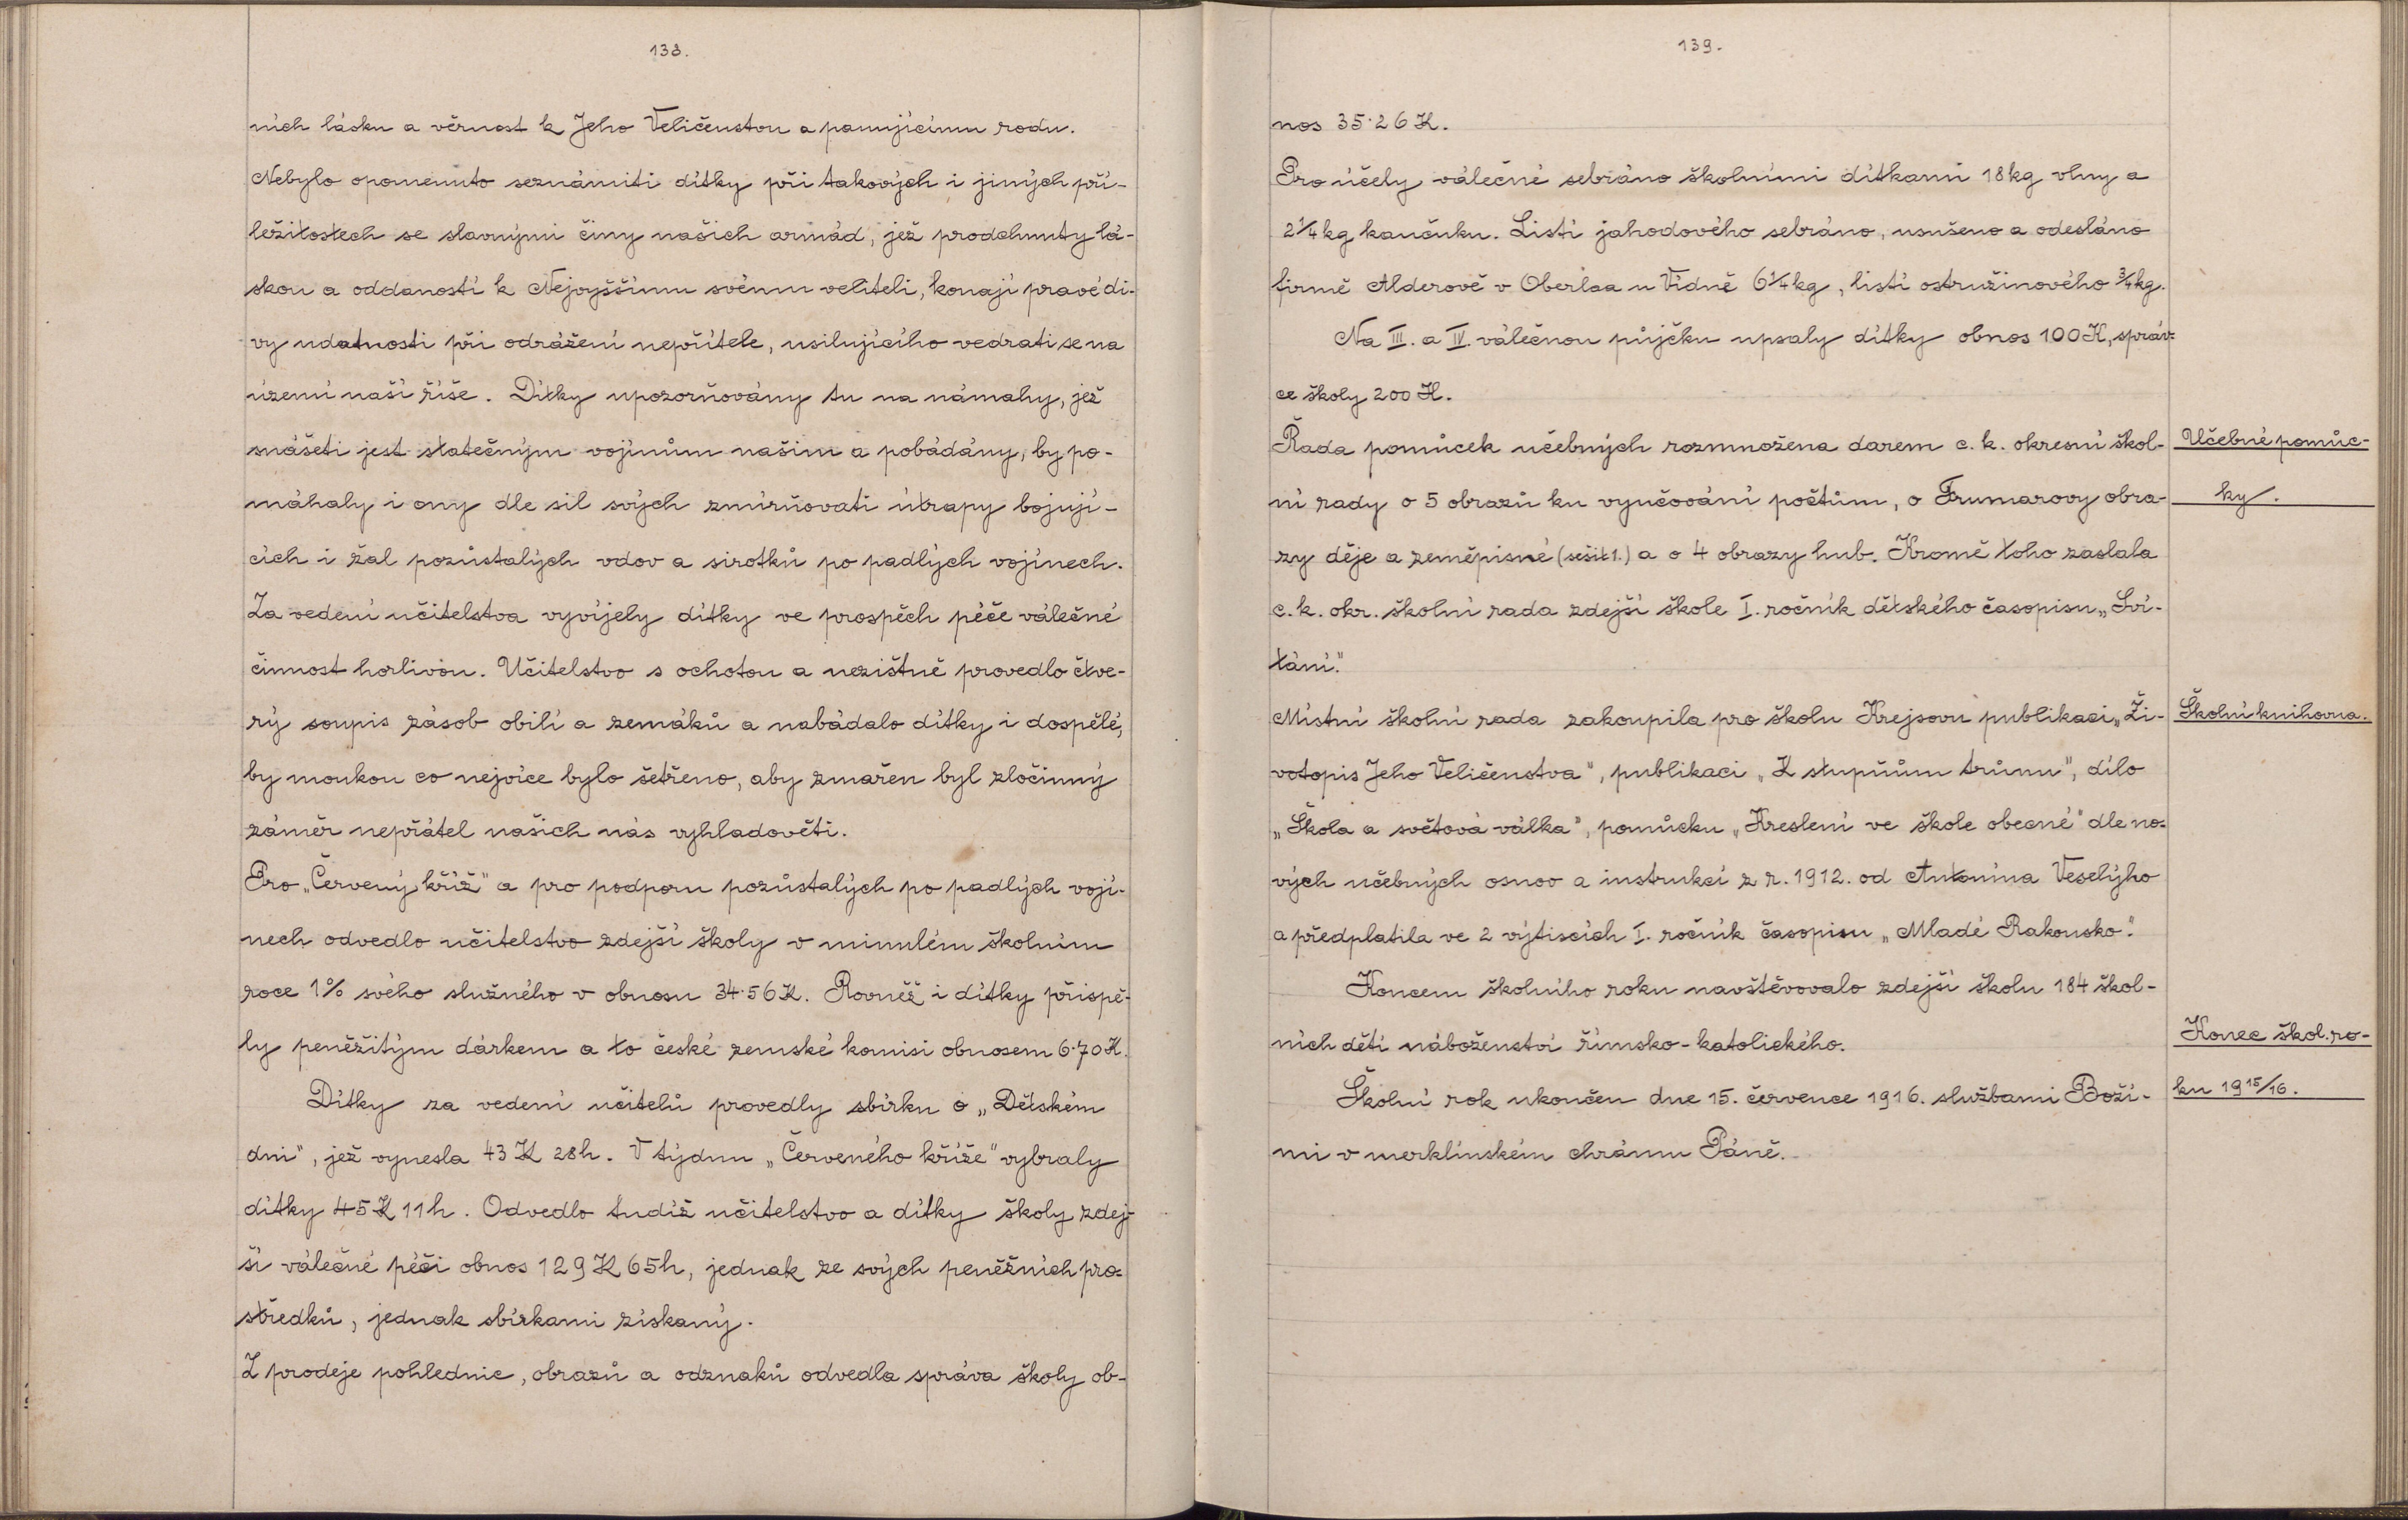 138.
ních lásku a věrnost k Jeho Veličenstvu a panujícímu rodu.
Nebylo opomenuto seznámiti dítky při takových i jiných pří-
ležitostech se slavnými činy našich armád, jež prodchnuty lá-
skou a oddaností k Nejvyššímu svému veliteli, konají pravé di-
vy udatnosti při odrážení nepřítele, usilujícího vedrati se na
území naší říše. Dítky upozorňovány tu na námahy, jež
snášeti jest statečným vojínům našim a pobádány, by po-
máhaly i ony dle sil svých zmírňovati útrapy bojují-
cích i žal pozůstalých vdov a sirotků po padlých vojínech.
Za vedení učitelstva vyvíjely dítky ve prospěch péče válečné
činnost horlivou. Učitelstvo s ochotou a nezištně provedlo čtve-
rý soupis zásob obilí a zemáků a nabádalo dítky i dospělé,
by moukou co nejvíce bylo šetřeno, aby zmařen byl zločinný
záměr nepřátel našich nás vyhladověti.
Pro „Červený kříž" a pro podporu pozůstalých po padlých vojí-
nech odvedlo učitelstvo zdejší školy v minulém školním
roce 1% svého služného v obnosu 34·56 K. Rovněž i dítky přispě-
ly peněžitým dárkem a to české zemské komisi obnosem 6·70 K.
Dítky za vedení učitelů provedly sbírku o „Dětském
dni", jež vynesla 43 K 28 h. V týdnu „Červeného kříže" vybraly
dítky 45 K 11 h. Odvedlo tudíž učitelstvo a dítky školy zdej-
ší válečné péči obnos 129 K 65 h, jednak ze svých peněžních pro-
středků, jednak sbírkami získaný.
Z prodeje pohlednic, obrazů a odznaků odvedla správa školy ob-
139.
nos 35·26 K.
Pro účely válečné sebráno školními dítkami 18 kg vlny a
2 1/4 kg kaučuku. Listí jahodového sebráno, usušeno a odesláno
firmě Alderově v Oberlaa u Vídně 6 1/4 kg, listí ostružinového 3/4 kg.
Na III. a IV. válečnou půjčku upsaly dítky obnos 100 K, správ-
ce školy 200 K.
Řada pomůcek učebných rozmnožena darem c. k. okresní škol-
Učebné pomůc-
ní rady o 5 obrazů ku vyučování počtům, o Frumarovy obra-
ky.
zy děje a zeměpisné (sešit 1.) a o 4 obrazy hub. Kromě toho zaslala
c. k. okr. školní rada zdejší škole I. ročník dětského časopisu „Sví-
tání".
Místní školní rada zakoupila pro školu Krejsovu publikaci „Ži-
Školní knihovna.
votopis Jeho Veličenstva", publikaci „K stupňům trůnu", dílo
„Škola a světová válka", pomůcku „Kreslení ve škole obecné" dle no-
vých učebných osnov a instrukcí z r. 1912. od Antonína Veselýho
a předplatila ve 2 výtiscích I. ročník časopisu „Mladé Rakousko".
Koncem školního roku navštěvovalo zdejší školu 184 škol-
ních dětí náboženství římsko-katolického.
Konec škol. ro-
Školní rok ukončen dne 15. července 1916. službami Boží-
ku 1915/16.
mi v merklínském chrámu Páně.